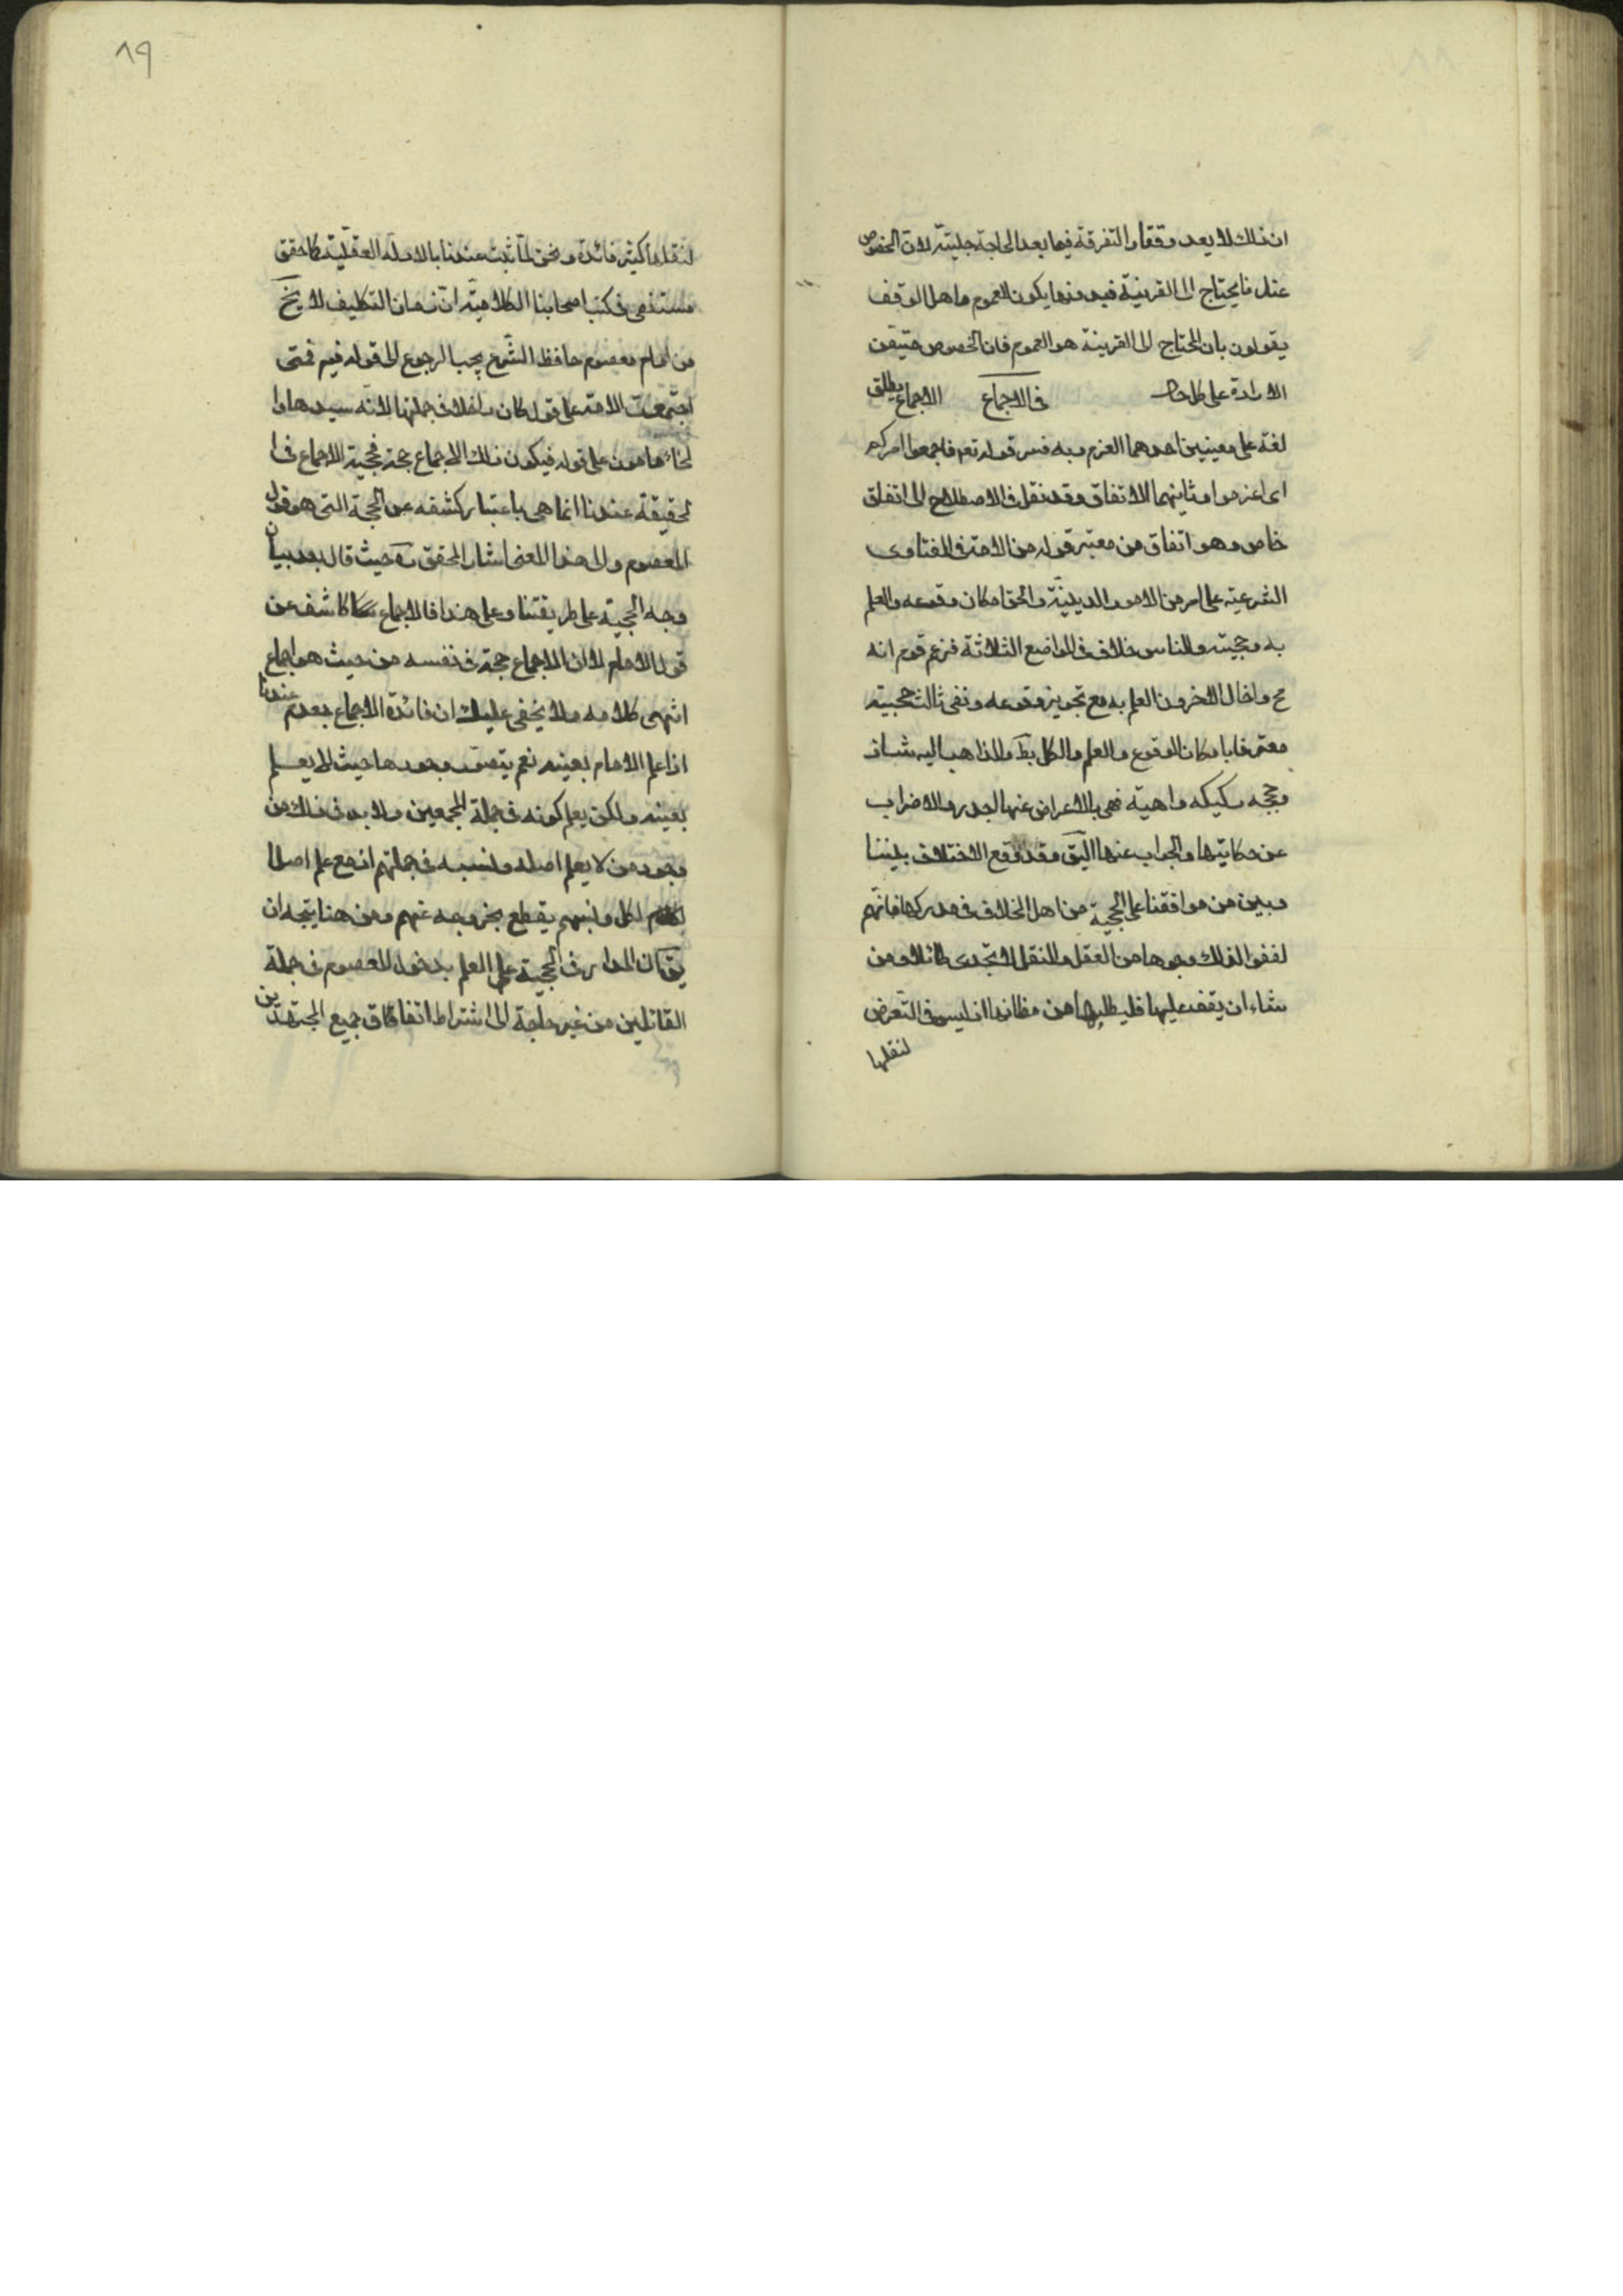 ان ذلك لا يعد وقفا والتفرقة فيما بعد الحاجة جليته لان الخصوص
عندنا يحتاج الى القرينة فبدونها يكون للعموم واهل الوقف
يقولون بان المحتاج الى القرينة هو العموم فان الخصوص متيقن
الارادة على كل حال في الاجماع الاجماع يطلق
لغة على معنيين احدهما العزم وبه فسر قوله تع فاجمعوا امركم
اى اعزموا وثانيهما الاتفاق وقد نقل في الاصطلاح الى اتفاق
خاص وهو اتفاق من معتبر قوله من الامة في الفتاوى
الشرعية على امر من الامور الدينية والحق امكان وقوعه والعلم
به وحجيته وللناس خلاف في المواضع الثلاثة فزعم قوم انه
مح واحال الاخرون العلم به مع تجويز وقوعه ونفى ثالث حجيته
معترفا بامكان الوقوع والعلم والكل بط والذاهب اليه شاذ
وحججه ركيكه واهية فهى بالاعراض عنها اجدر والاضراب
عن حكايتها والجواب عنها اليق وقد وقع الاختلاف بيننا
وبين من وافقنا على الحجية من اهل الخلاف في مدركها فانهم
لفقوا لذلك وجوها من العقل والنقل لا تجدى طائلا ومن
شاء ان يقف عليها فليطلبها من مظانها اذ ليس في التعرض
لنقلها
لنقلها كثير فائدة ونحن لما ثبت عندنا بالادلة العقلية كما حقق
مستقصى في كتب اصحابنا الكلامية ان زمان التكليف لا يخ
من امام معصوم حافظ الشرع يجب الرجوع الى قوله فيه فمتى
اجتمعت الامة على قول كان داخلا في جملتها لانه سيدها وا
لخطاء مامون على قوله فيكون ذلك الاجماع حجة فحجية الاجماع في ا
لحقيقة عندنا انما هى باعتبار كشفه عن الحجة التى هو قول
المعصوم والى هذا المعنى اشار المحقق ره حيث قال بعد بيان
وجه الحجية على طريقتنا وعلى هذا فالاجماع كاشف عن
قول الامام لا ان الاجماع حجة في نفسه من حيث هو اجماع
انتهى كلامه ولا يخفى عليك ان فائدة الاجماع تعدم عندنا
اذا علم الامام بعينه نعم يتصور وجودها حيث لا يعلم
بعينه ولكن يعلم كونه في جملة المجمعين ولا بد في ذلك من
وجود من لا يعلم اصله ونسبه في جملتهم اذ مع علم اصل ا
لكل ونسبهم يقطع بخروجه عنهم ومن هنا يتجه ان
يق ان المدار في الحجية على العلم بدخول المعصوم في جملة
القائلين من غير حاجة الى اشتراط اتفاق جميع المجتهدين
٨٩